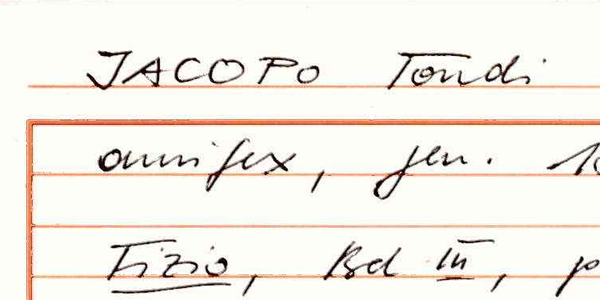 JACOPO Tondi
aurifex, gen.
Tizio, Bd III, p